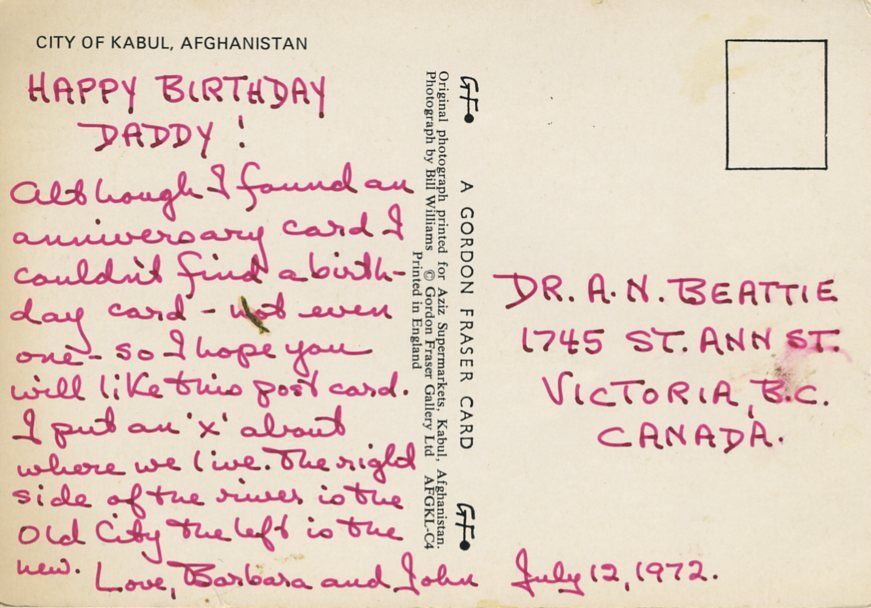 CITY OF KABUL, AFGHANISTAN
HAPPY BIRTHDAY
DADDY!
Although I found an
anniversary card I
couldn't find a birth-
day card - not even
one - so I hope you
will like this post card.
I put an 'x' about
where we live. The right
side of the river is the
Old City the left is the
new. Love, Barbara and John July 12, 1972.
Original photograph printed for Aziz Supermarkets, Kabul, Afghanistan.
Photograph by Bill Williams © Gordon Fraser Gallery Ltd AFGKL-C4
Printed in England
GF. A GORDON FRASER CARD GF.
DR. A. N. BEATTIE
1745 ST. ANN ST.
VICTORIA, B.C.
CANADA.